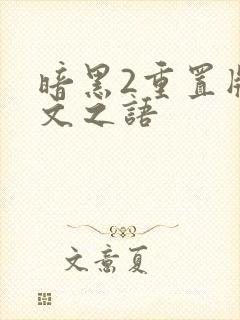 暗黑2重置版
文之語
文意夏